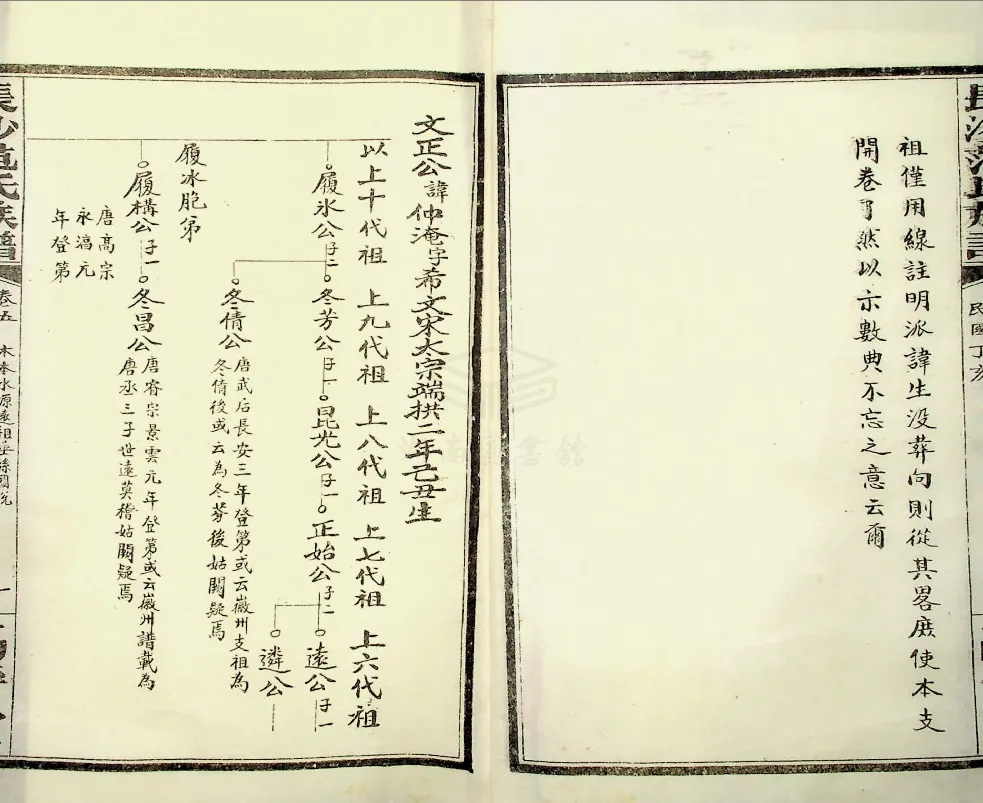 長沙范氏族譜
民國丁亥
祖僅用線註明派諱生没葬向則從其畧庶使本支
開卷了然以示數典不忘之意云爾
文正公諱仲淹字希文宋太宗端拱二年己丑生
以上十代祖 上九代祖 上八代祖 上七代祖 上六代祖
履氷公子二 冬芳公子一 昆光公子一 正始公子二 遠公子一
遴公
冬倩公
唐武后長安三年登第或云徽州支祖為
冬倩後或云為冬芬後姑闕疑焉
履冰胞弟
履構公子一 冬昌公
唐睿宗景雲元年登第或云徽州譜載為
唐丞三子世遠莫稽姑闕疑焉
唐高宗
永濇元
年登第
長沙范氏族譜
卷五 木本水源遠祖世系圖說